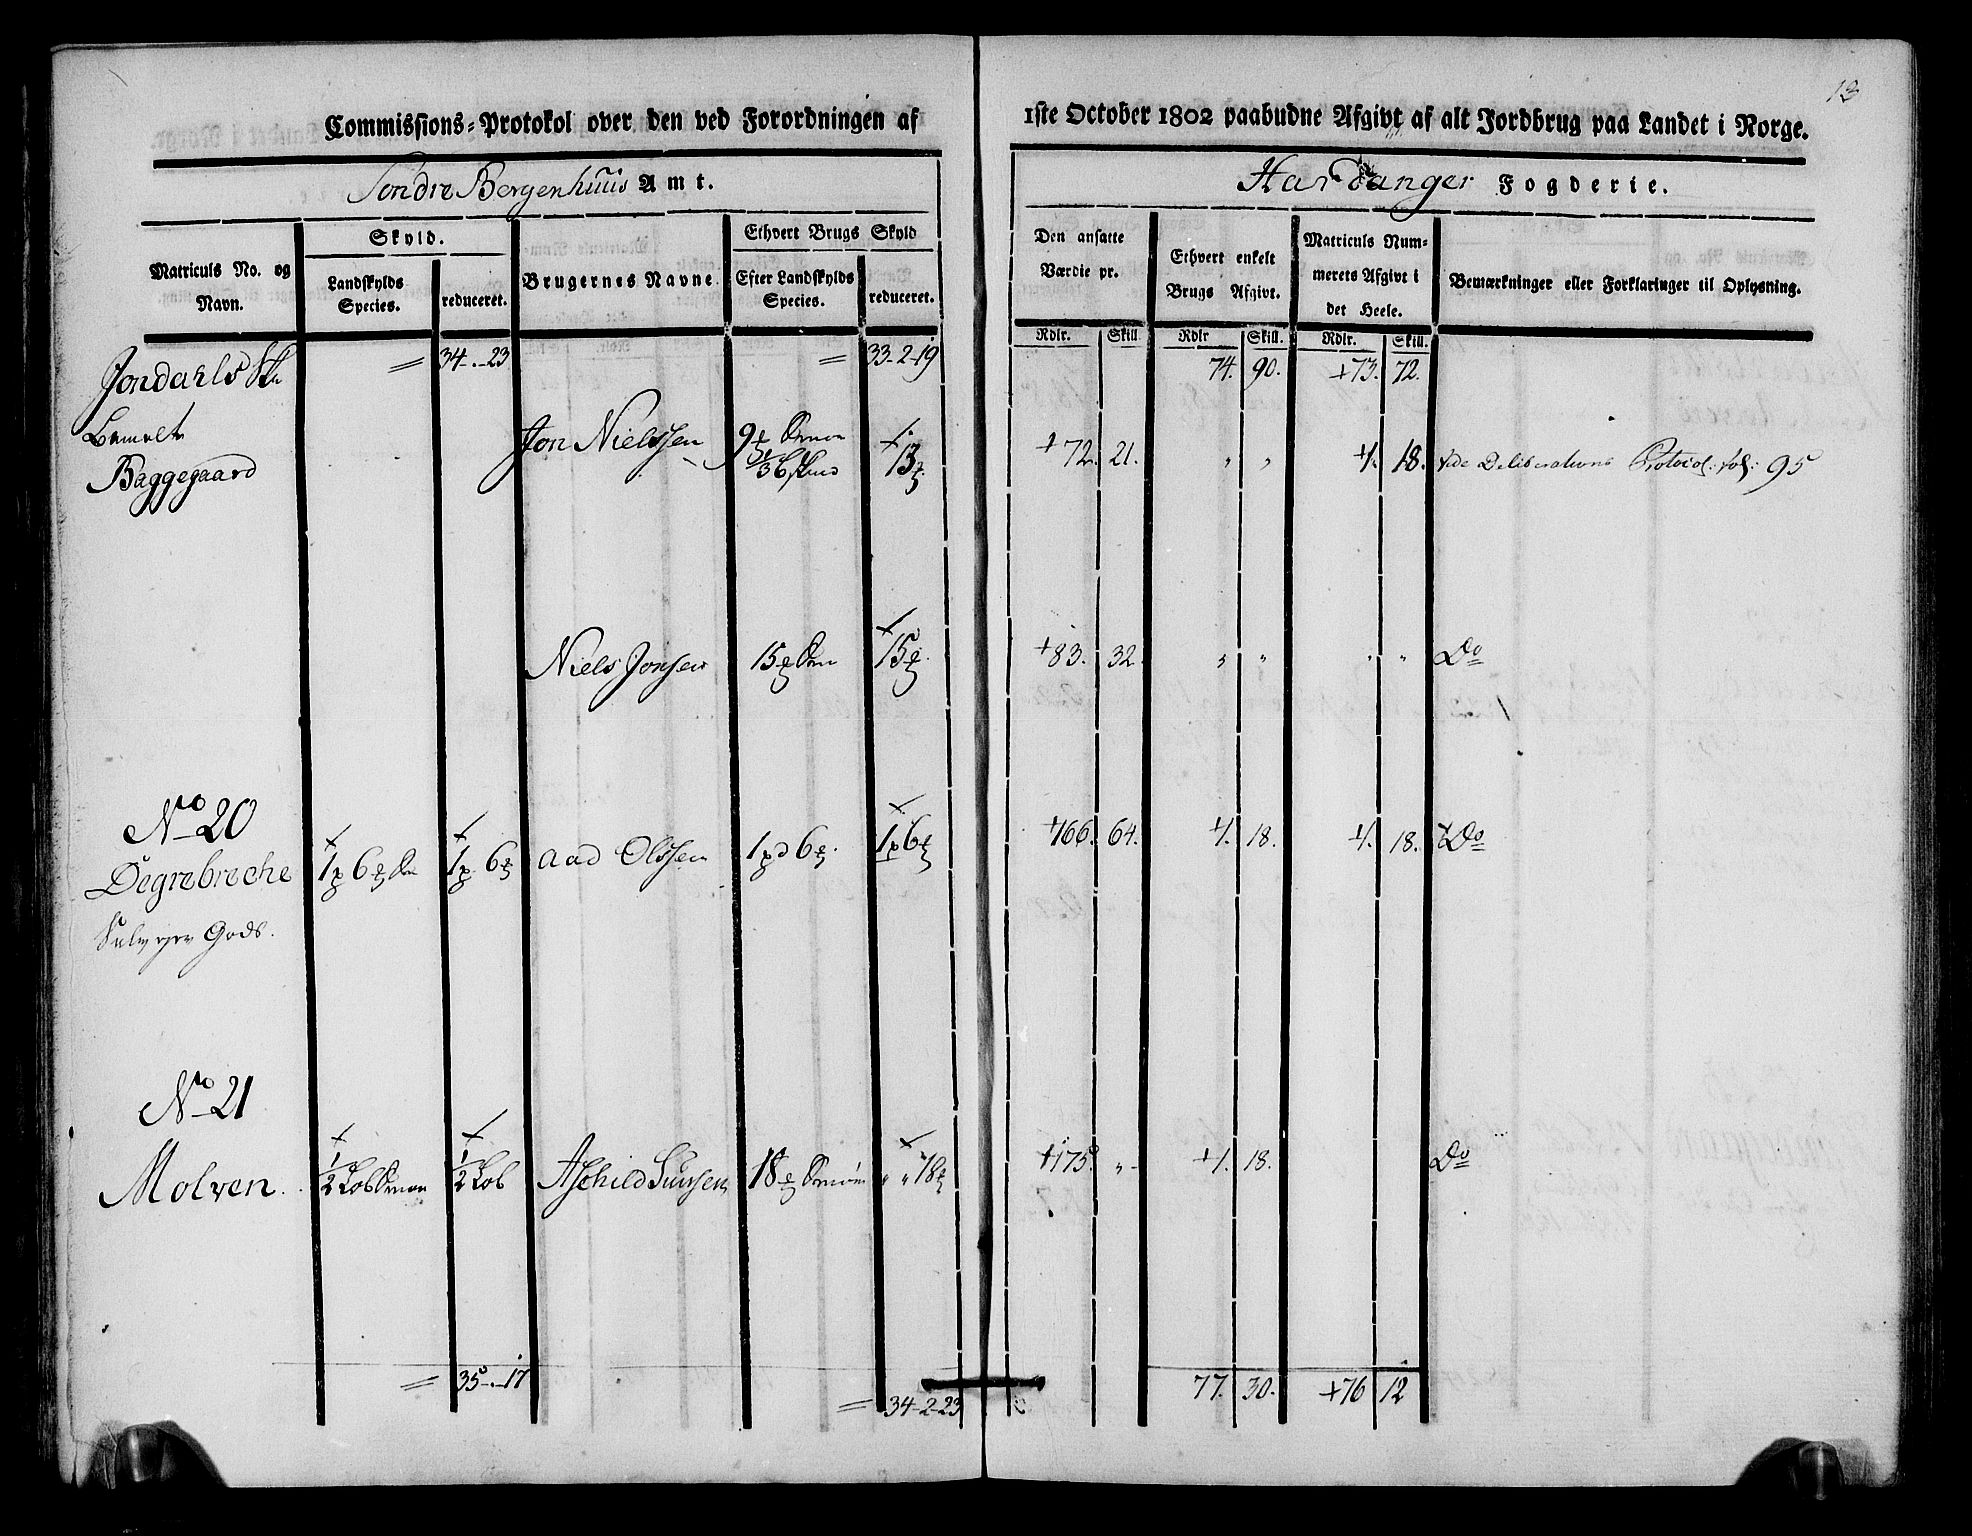 13
Commissions-Protokol over den ved Forordningen af 1ste October 1802 paabudne Afgivt af alt Jordbrug paa Landet i Norge.
Søndre Bergenhuus Amt. Hardanger Fogderie.
Matriculs No. og Navn.
Skyld.
Landskylds Species.
reduceret.
Brugernes Navne
Ethvert Brugs Skyld
Efter Landskylds Species.
reduceret.
Den ansatte Værdie pr.
Rdlr. Skill.
Ethvert enkelt Brugs Afgivt.
Rdlr Skill.
Matriculs Nummerets Afgivt i det Heele.
Rdlr. Skill.
Bemærkninger eller Forklaringer til Oplysning.
Jondahls = 34-.-23 = 33-2-19 74. 90. +73. 72.
Baggegaard Jon Nielssen 9 13 +72. 21. " " +1. 18. Deliberations Protocol: fol: 95
Niels Jonsen 15 15 +83. 32. " " " " Do
No 20
Degrebreche 1 6 1 6 Aad Olssen 1 6 1 6 +166. 64. +1. 18. +1. 18. Do
Selv eyer Gods.
No 21
Molven. 1/2 Løb 1/2 Løb Aschild 18 " " 18 +175. " - +1. 18. Do
= 35-.-17 = 34-2-23 77. 30. +76 12